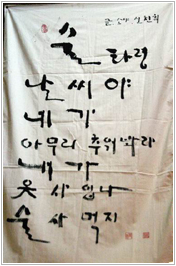 술 타령
날씨야
네가
아무리 추워봐라
내가
옷 사 입나
술 사 먹지